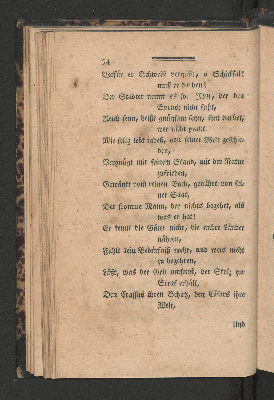 54
Wofür er Schweiß vergießt, o Schicksal!
muß er darben?
Der Städter nennt es so. Nein, der den
Spruch nicht faßt,
Reich seyn, heißt gnügsam seyn, steh darbet,
wer nicht praßt.
Wie selig lebt indeß, von seiner Welt geschie-
den,
Vergnügt mit seinem Stand, mit der Natur
zufrieden,
Getränkt vom reinen Bach, genährt von sei-
ner Saat,
Der fromme Mann, der nichts begehrt, als
was er hat!
Er kennt die Güter nicht, die andre Länder
nähren,
Fühlt kein Bedürfniß mehr, und weis nicht
zu begehren,
Läßt, was der Geiz umfaßt, der Stolz zur
Straf erhält,
Dem Crassus ihren Schatz, den Cäsars ihre
Welt,
Und